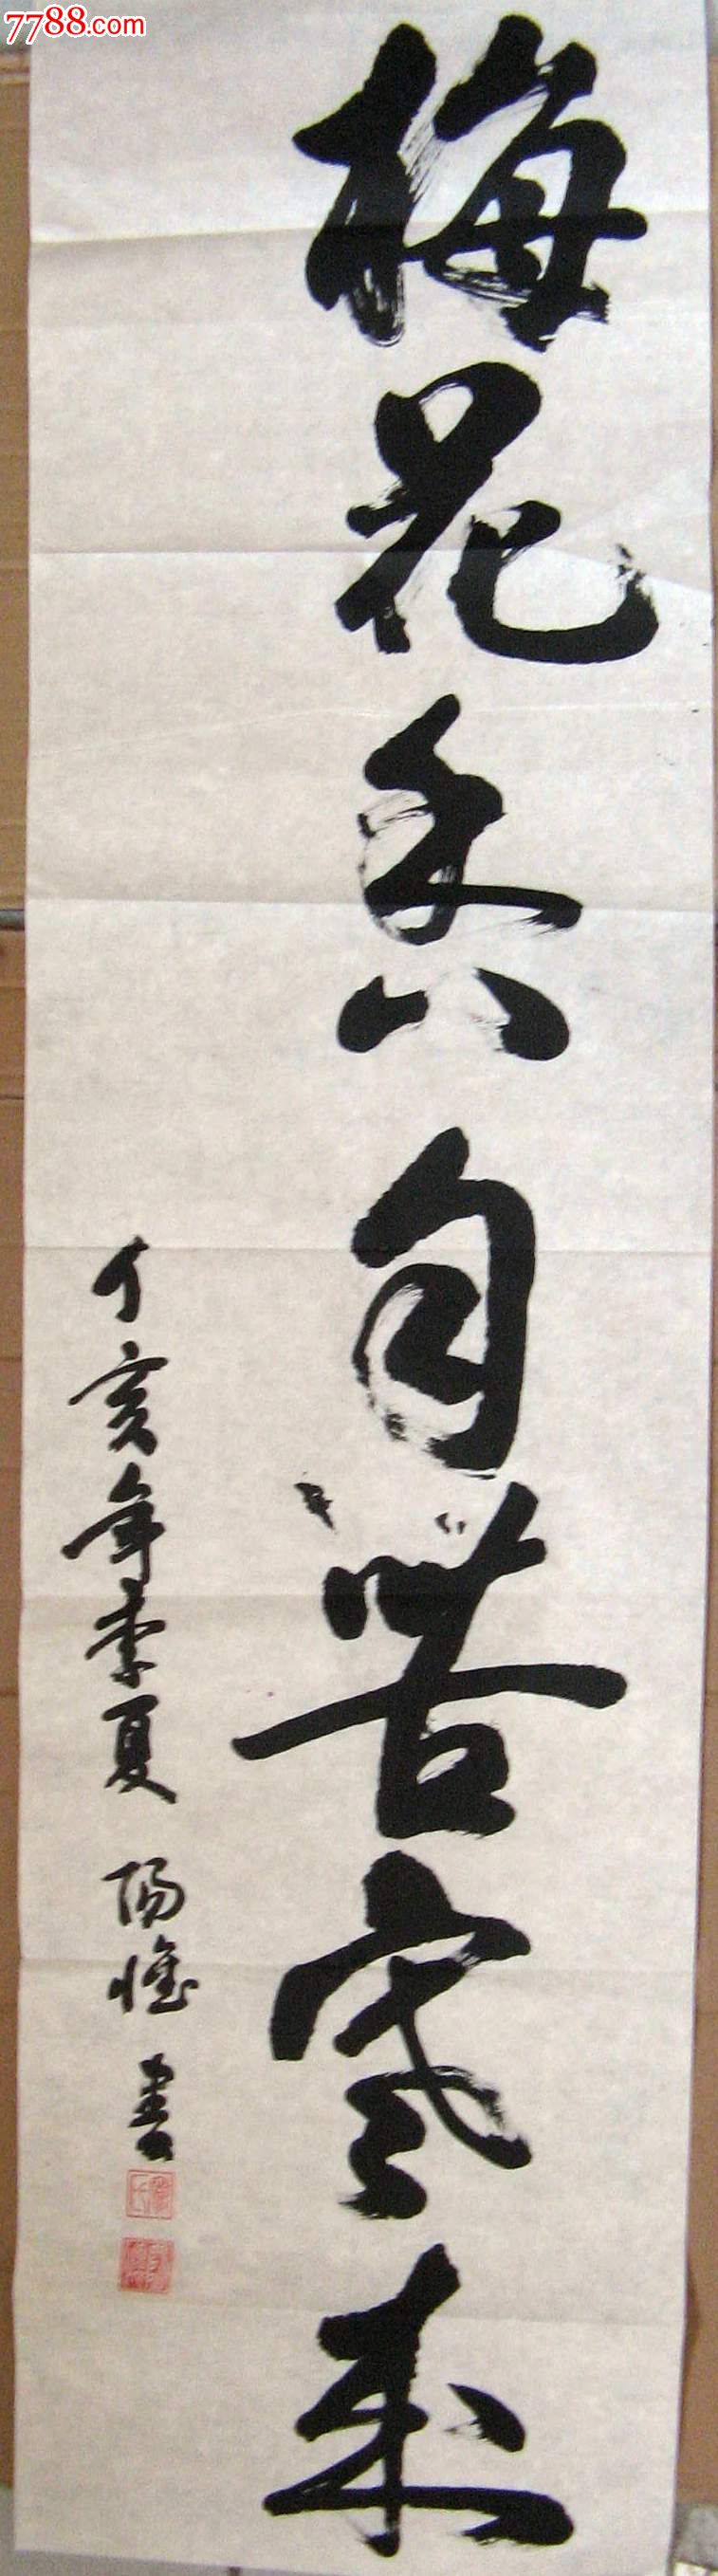 7788.com
梅花香自苦寒来
丁亥年季夏 陽恒 書